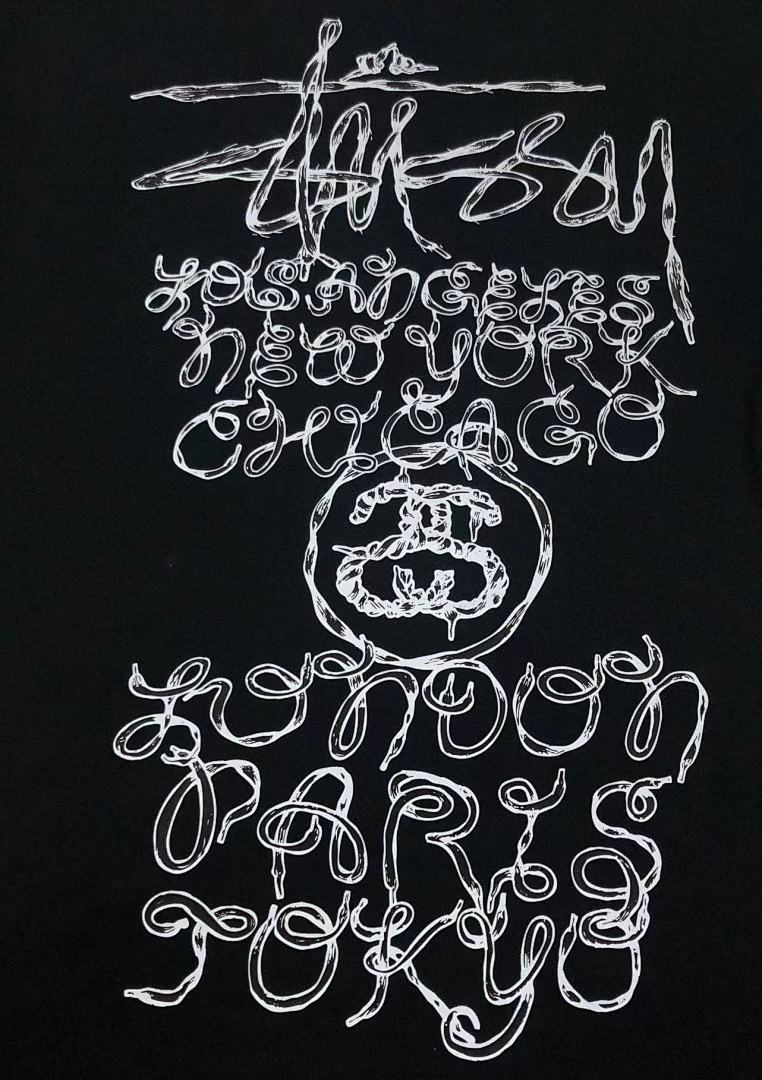 Stüssy
LOS ANGELES
NEW YORK
CHICAGO
LONDON
PARIS
TOKYO